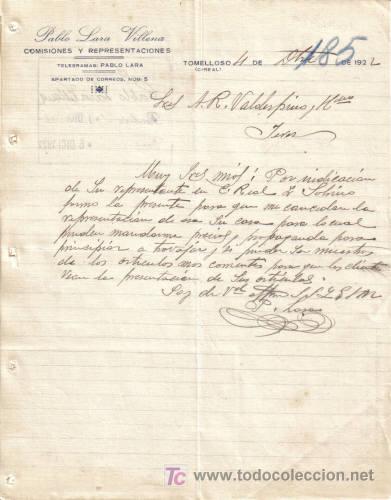 Pablo Lara Villena
COMISIONES Y REPRESENTACIONES
TELEGRAMAS: PABLO LARA
APARTADO DE CORREOS, NÚM. 5
TOMELLOSO 4 DE DE 1922
(C-REAL)
185
A. R. Valdespino, Hno
Jerez
Muy Sres mios: Por indicacion
de su representante en C. Real
la presente para que me concedan la
representación de esa su casa para lo cual
pueden mandarme precios y propaganda para
principiar a trabajar, y si puede ser muestras
de los articulos mas corrientes para que los clientes
vean la presentación de sus articulos.
Soy de Vds
P. Lara
TC todocoleccion
www.todocoleccion.net